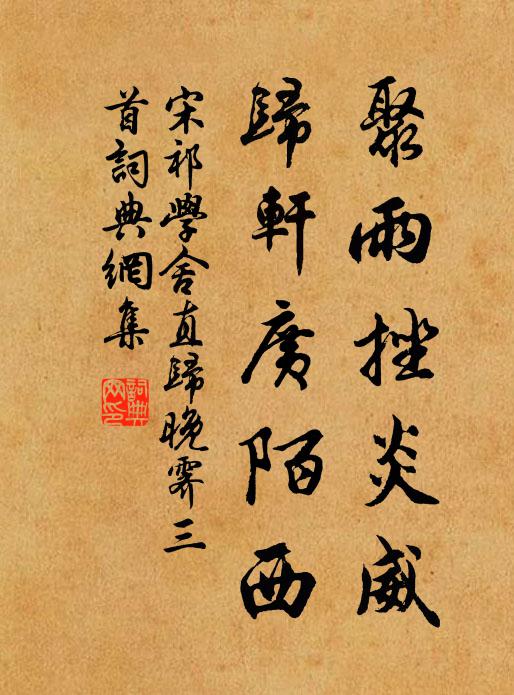 聚雨挫炎威
歸軒廣陌西
宋祁學舍直歸晚霽三
首詞典網集
詞典網印